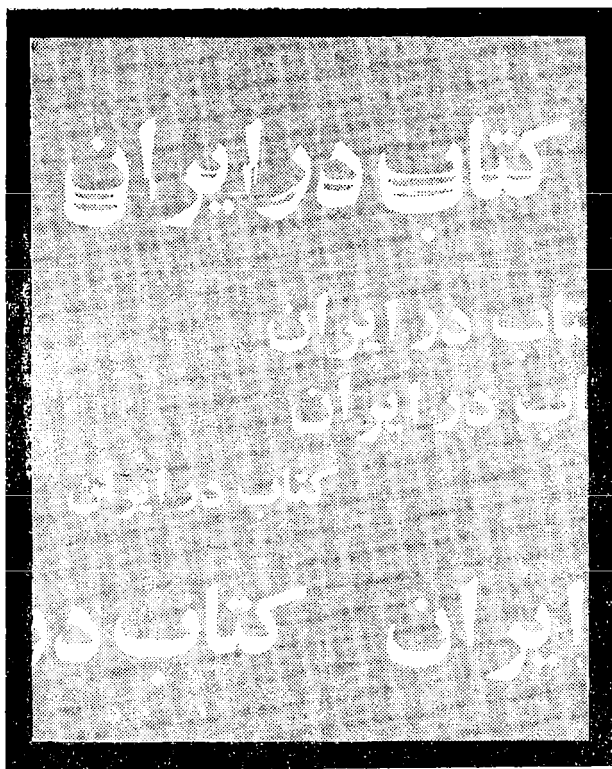 کتاب در ایران
تاب در ایران
اب در ایران
کتاب در ایران
ایران کتاب در